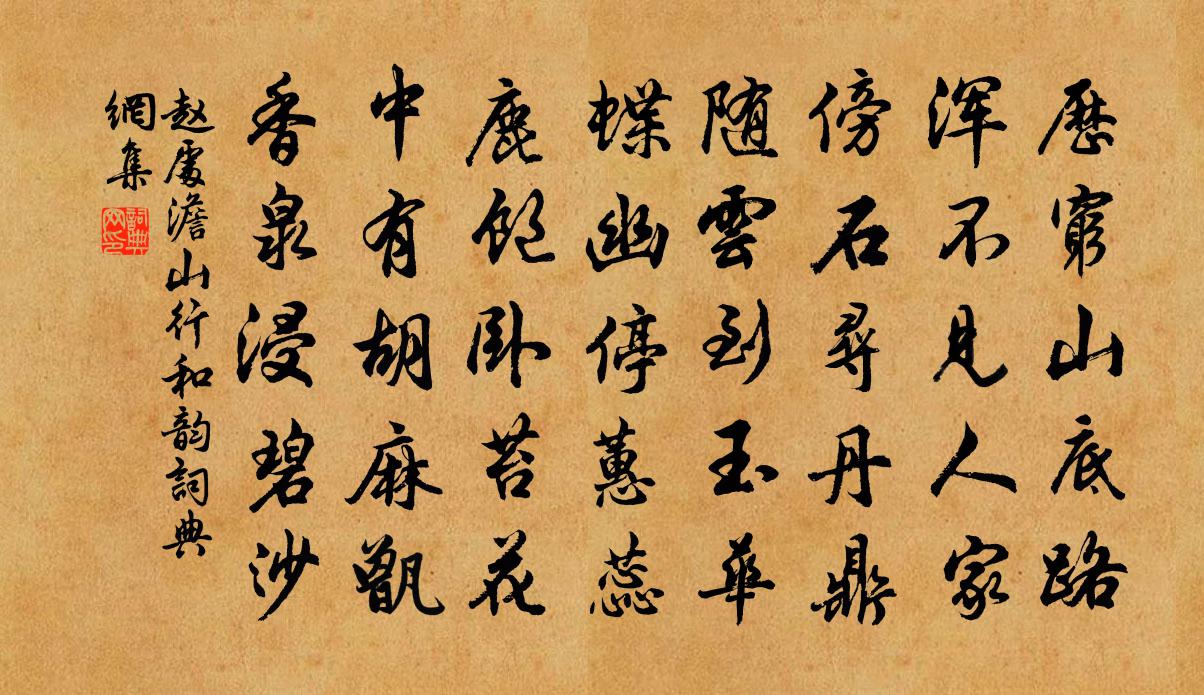 歷窮山底路
渾不見人家
傍石尋丹鼎
随雲到玉華
蝶幽停蕙蕊
鹿飽卧苔花
中有胡麻甑
香泉浸碧沙
赵處澹山行和韵詞典
網集
詞典
网印